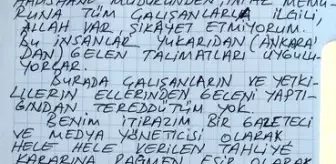 HAPİSHANE MÜDÜRÜNDEN İNFAZ MEMU-
RUNA TÜM ÇALIŞANLARLA İLGİLİ,
ALLAH VAR ŞİKAYET ETMİYORUM.
BU İNSANLAR YUKARIDAN (ANKARA'
DAN) GELEN TALİMATLARI UYGULU-
YORLAR.
BURADA ÇALIŞANLARIN VE YETKİ-
LİLERİN ELLERİNDEN GELENİ YAPTI-
ĞINDAN TEREDDÜTÜM YOK.
BENİM İTİRAZIM BİR GAZETECİ
VE MEDYA YÖNETİCİSİ OLARAK
HELE HELE VERİLEN TAHLİYE
KARARINA RAĞMEN ESİR OLARAK